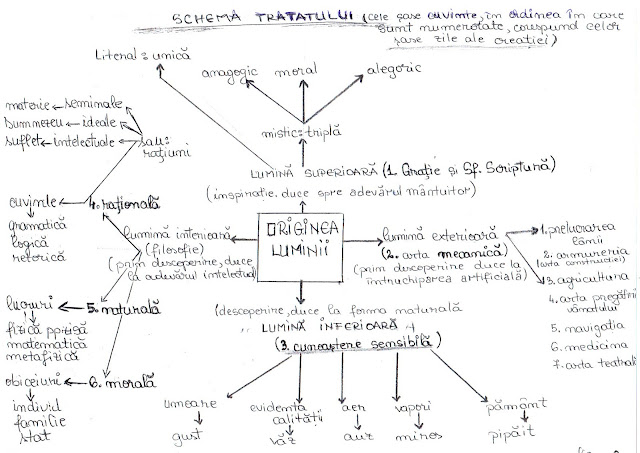 SCHEMA TRATATULUI (cele șase cuvinte, în ordinea în care
sunt numerotate, corespund celor
șase zile ale creației)
Literal = unică
anagogic moral alegoric
mistic = triplă
materie seminale
Dumnezeu ideale
suflet intelectuale
sau:
rațiuni
LUMINĂ SUPERIOARĂ (1. Grație și Sf. Scriptură)
(inspirație. duce spre adevărul mântuitor)
cuvinte 4. rațională
gramatică
logică
retorică
lumină interioară
(filosofie)
(prin descoperire, duce
la adevărul intelectual
ORIGINEA
LUMINII
lumină exterioară
(2. arta mecanică)
(prin descoperire duce la
întruchiparea artificială)
1. prelucrarea
lânii
2. armureria
(arta construcției)
3. agricultura
4. arta pregătirii
vânatului
5. navigația
6. medicina
7. arta teatrală
lucruri 5. naturală
fizică ppzisă
matematică
metafizică
obiceiuri 6. morală
individ
familie
stat
(descoperire, duce la forma naturală
LUMINĂ INFERIOARĂ
(3. cunoaștere sensibilă)
umoare evidența
calității aer vapori pământ
gust văz auz miros pipăit